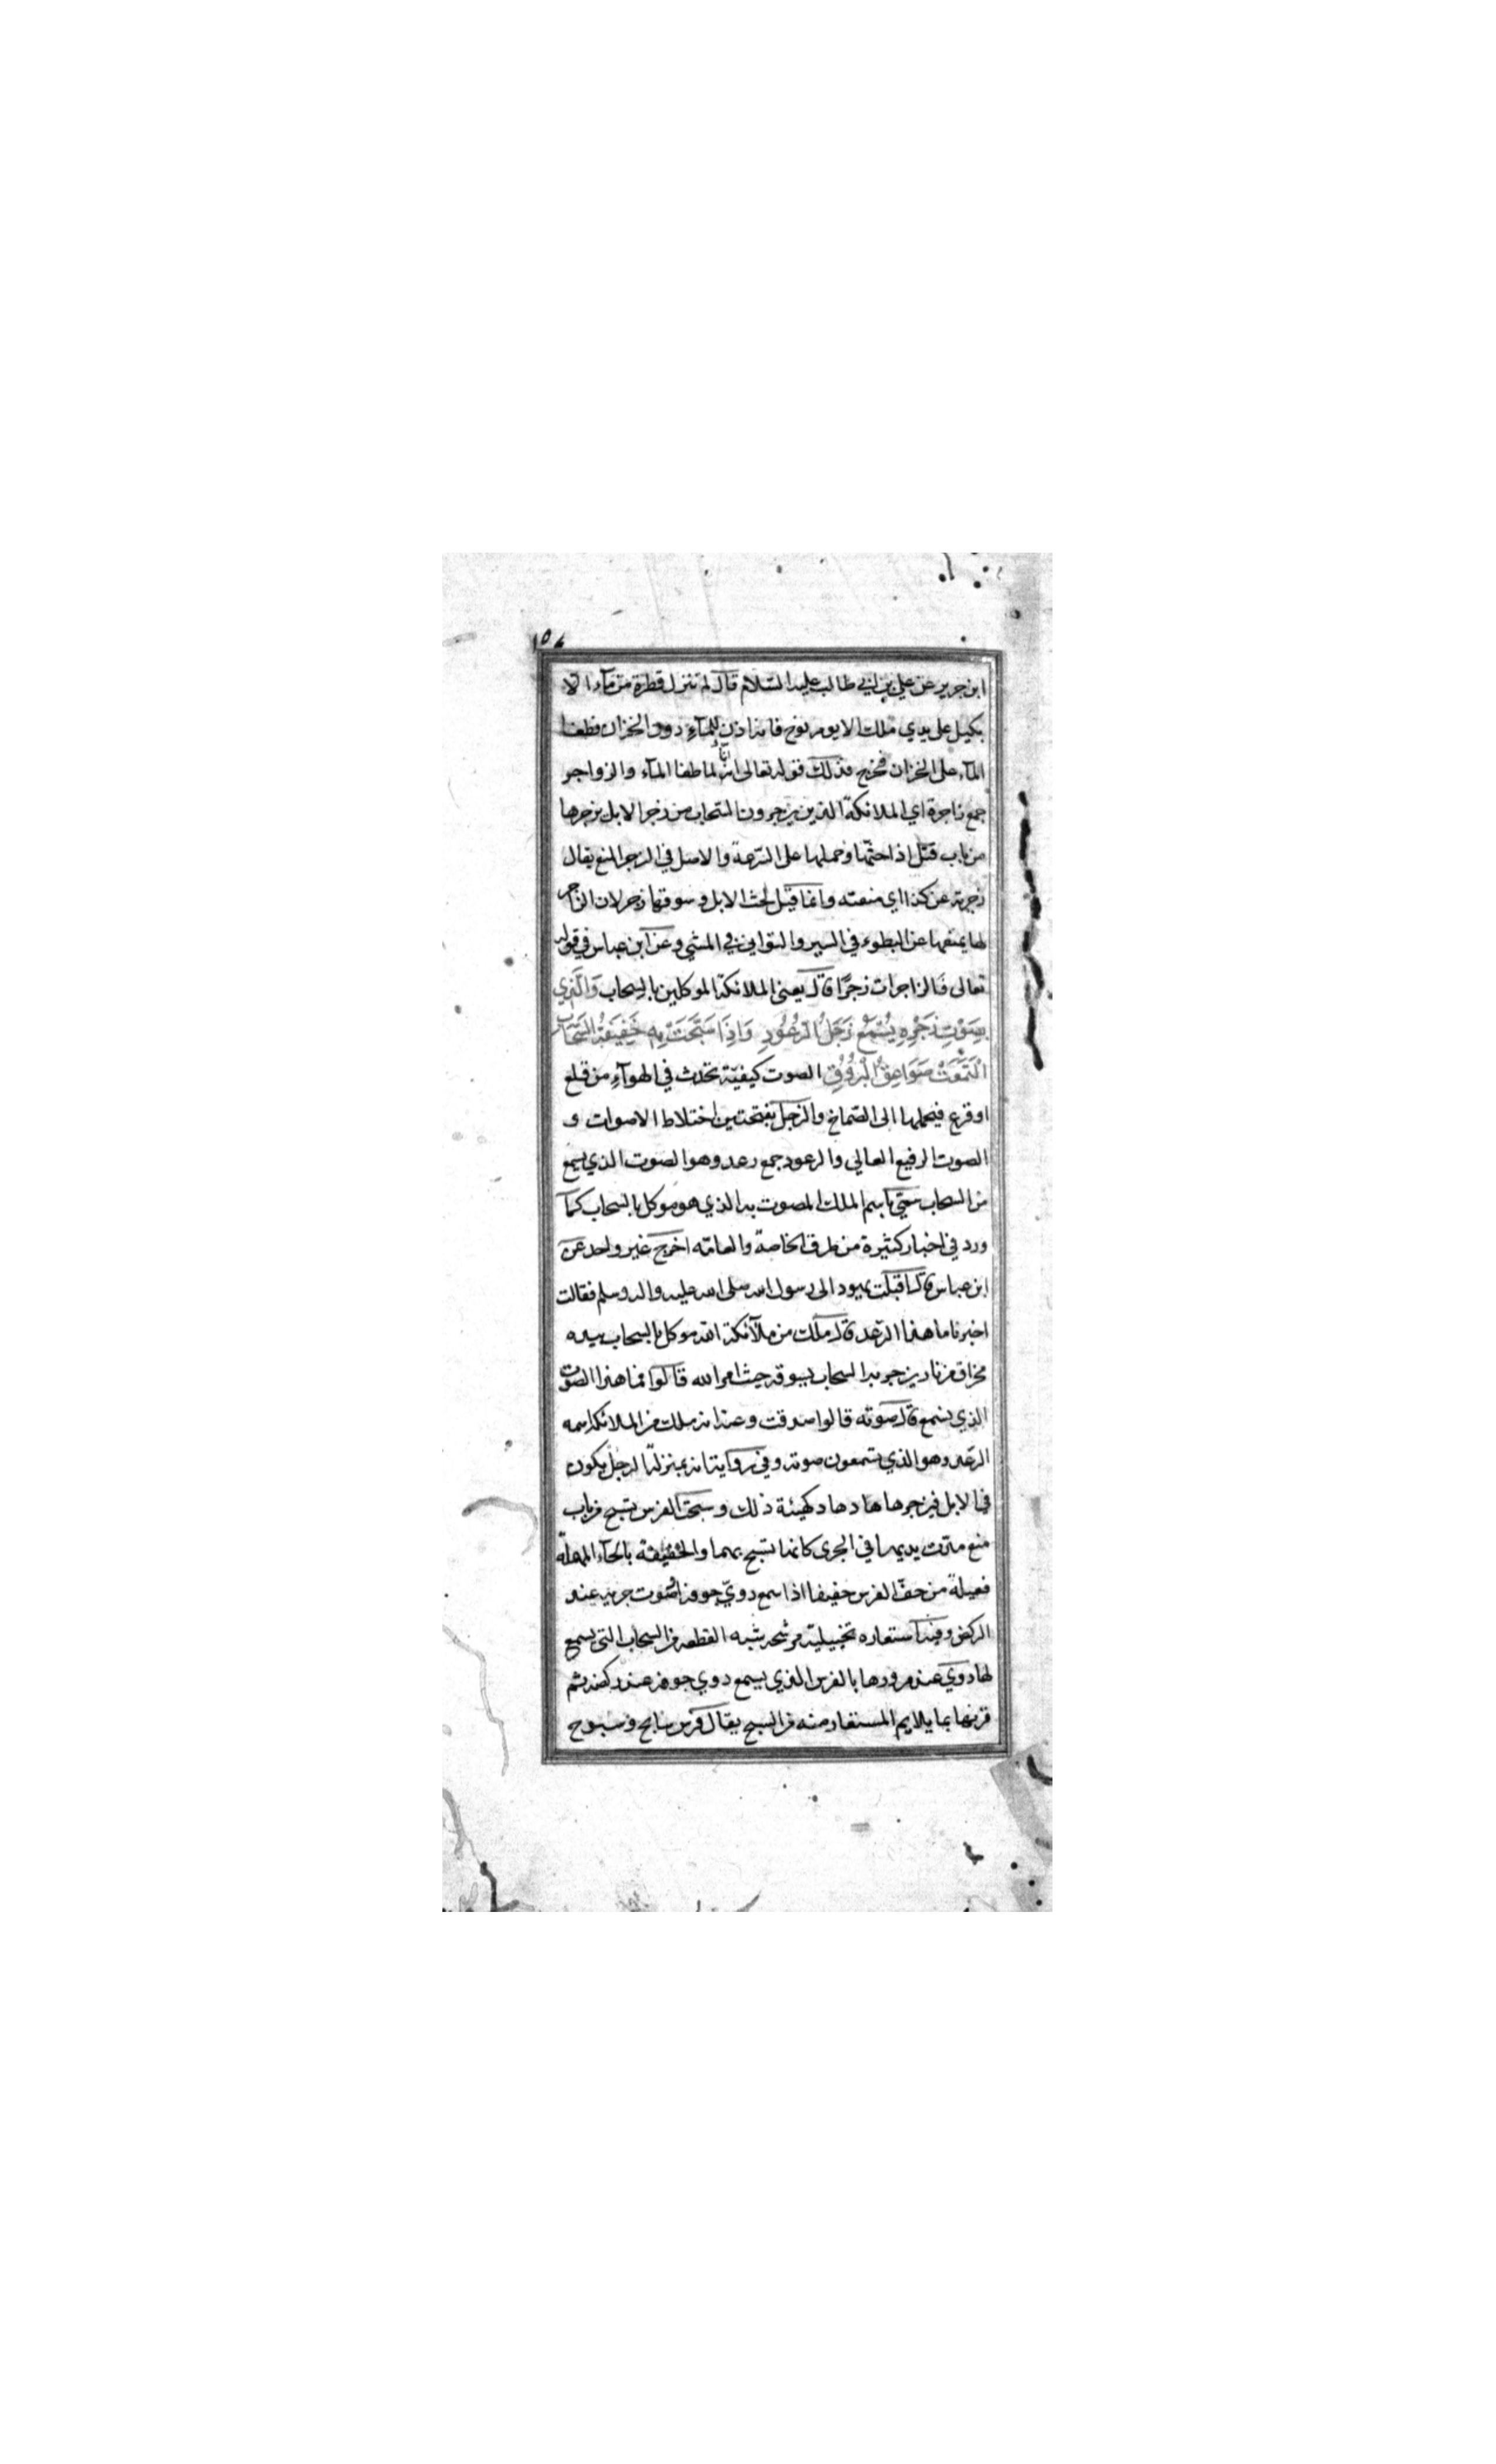 ١٥٤
ابن جرير عن علي بن ابي طالب عليه السّلام قال لم تنزل قطرة من مآء الا
بكيل على يدي ملك الا يوم نوح فانه اذن للمآء دون الخزان فطغا
المآء على الخزان فخرج فذلك قوله تعالى انّا لما طغا المآء والزواجر
جمع زاجرة اي الملائكة الذين يزجرون السّحاب من زجر الابل يزجرها
من باب قتل اذا حثّها وحملها على السّرعة والاصل في الزجر المنع يقال
زجرته عن كذا اي منعته وانما قيل لحث الابل وسوقها زجر لان الزاجر
لها يمنعها عن البطوء في السير والتواني في المشي وعن ابن عباس في قوله
تعالى فالزاجرات زجرًا قال يعنى الملائكة الموكلين بالسحاب وَالَّذِي
بِصَوْتِ زَجْرِهِ يُسْمَعُ زَجَلُ الرُّعُودِ وَاِذَا سَبَحَتْ بِهِ حَفِيفَةُ السَّحَابِ
الْتَمَعَتْ صَوَاعِقُ الْبُرُوقِ الصوت كيفيّة تحدث في الهوآء من قلع
او قرع فيحملها الى الصّماخ والزجل بفتحتين اختلاط الاصوات و
الصوت الرفيع العالي والرعود جمع رعد وهو الصوت الذي يسمع
من السحاب سمّي باسم الملك المصوت به الذي هو موكل بالسحاب كما
ورد في اخبار كثيرة من طرق الخاصة والعامّه اخرج غير واحد عن
ابن عباس قال اقبلت يهود الى رسول الله صلى الله عليه واله وسلم فقالت
اخبرنا ما هذا الرّعد قال ملك من ملآئكة الله موكل بالسحاب بيده
مخراق من نار يزجر به السحاب يسوقه حيث امر الله قالوا فما هذا الصّوت
الذي يسمع قال صوته قالوا صدقت وعنه انه ملك من الملائكة اسمه
الرّعد وهو الذي تسمعون صوته وفي رواية انه بمنزلة الرجل يكون
في الابل فيزجرها هاد هاد كهيئة ذلك وسبحت الفرس تسبح من باب
منع مدّت يديها في الجرى كانها تسبح بهما والحفيفة بالحآء المهملة
فعيلة من حفّ الفرس حفيفا اذا سمع دويّ جوفه او صوت جريه عند
الركض وفيه استعاره تخييلية مرشحه شبه القطعه من السحاب التي يسمع
لها دوي عند مرورها بالفرس الذي يسمع دوي جوفه عند ركضه ثم
قرنها بما يلايم المستعار منه من السبح يقال فرس سابح وسبوح